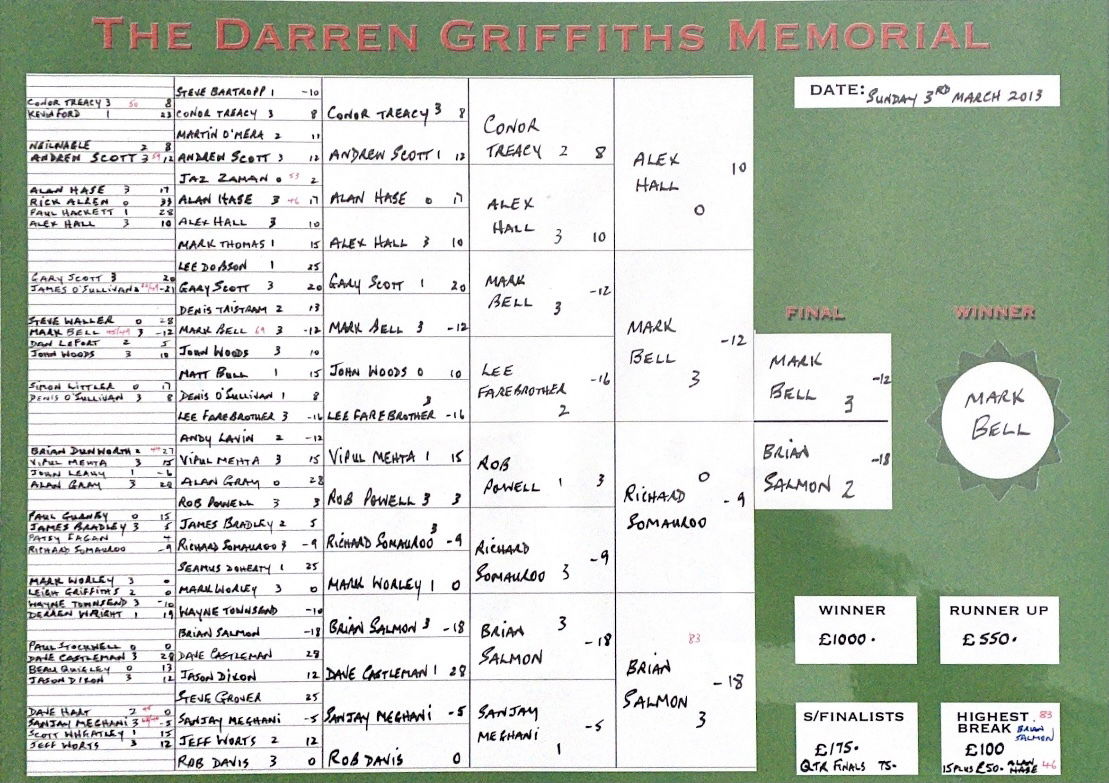 THE DARREN GRIFFITHS MEMORIAL
DATE: SUNDAY 3RD MARCH 2013
CONOR TREACY 3 50 8
KEVIN FORD 1 23
NEIL NAGLE 2 8
ANDREW SCOTT 3 59 12
ALAN HASE 3 17
RICK ALLEN 0 33
PAUL HACKETT 1 28
ALEX HALL 3 10
GARY SCOTT 3 20
JAMES O'SULLIVAN -21
STEVE WALLER 0 28
MARK BELL 3 -12
DAN LEFORT 2 5
JOHN WOODS 3 10
SIMON LITTLER 0 17
DENIS O'SULLIVAN 3 8
BRIAN DUNWORTH 2 27
VIPUL MEHTA 3 15
JOHN LEAHY 1 -6
ALAN GRAY 3 28
PAUL GURNEY 0 15
JAMES BRADLEY 3 5
PATSY FAGAN 4
RICHARD SOMAUROO -9
MARK WORLEY 3 0
LEIGH GRIFFITHS 2 0
WAYNE TOWNSEND 3 -10
DERREN WRIGHT 1 19
PAUL STOCKWELL 0 0
DAVE CASTLEMAN 3 28
BEAU QUIGLEY 0 13
JASON DIXON 3 12
DAVE HART 2 0
SANJAY MEGHANI 3 -5
SCOTT WHEATLEY 1 15
JEFF WORTS 3 12
STEVE BARTROPP 1 -10
CONOR TREACY 3 8
MARTIN O'MERA 2 11
ANDREW SCOTT 3 12
JAZ ZAMAN 0 53 2
ALAN HASE 3 46 17
ALEX HALL 3 10
MARK THOMAS 1 15
LEE DOBSON 1 25
GARY SCOTT 3 20
DENIS TRISTRAM 2 13
MARK BELL 69 3 -12
JOHN WOODS 3 10
MATT BULL 1 15
DENIS O'SULLIVAN 1 8
LEE FAREBROTHER 3 -16
ANDY LAVIN 2 -12
VIPUL MEHTA 3 15
ALAN GRAY 0 28
ROB POWELL 3 3
JAMES BRADLEY 2 5
RICHARD SOMAUROO 3 -9
SEAMUS DOHERTY 1 25
MARK WORLEY 3 0
WAYNE TOWNSEND -10
BRIAN SALMON -18
DAVE CASTLEMAN 28
JASON DIXON 12
STEVE GROVER 25
SANJAY MEGHANI -5
JEFF WORTS 2 12
ROB DAVIS 3 0
CONOR TREACY 3 8
ANDREW SCOTT 1 12
ALAN HASE 0 17
ALEX HALL 3 10
GARY SCOTT 1 20
MARK BELL 3 -12
JOHN WOODS 0 10
LEE FAREBROTHER 3 -16
VIPUL MEHTA 1 15
ROB POWELL 3 3
RICHARD SOMAUROO 3 -9
MARK WORLEY 1 0
BRIAN SALMON 3 -18
DAVE CASTLEMAN 1 28
SANJAY MEGHANI -5
ROB DAVIS 0
CONOR
TREACY 2 8
ALEX
HALL 3 10
MARK
BELL 3 -12
LEE
FAREBROTHER -16
2
ROB
POWELL 1 3
RICHARD
SOMAUROO 3 -9
BRIAN 3
SALMON -18
SANJAY
MEGHANI -5
1
ALEX 10
HALL
0
MARK -12
BELL
3
RICHARD 0 -9
SOMAUROO
83
BRIAN
SALMON -18
3
FINAL
MARK -12
BELL 3
BRIAN -18
SALMON 2
WINNER
MARK
BELL
WINNER
£1000.
RUNNER UP
£550.
S/FINALISTS
£175.
QTR FINALS 75.
HIGHEST 83
BREAK BRIAN SALMON
£100
15 PLUS £50. ALAN HASE 46